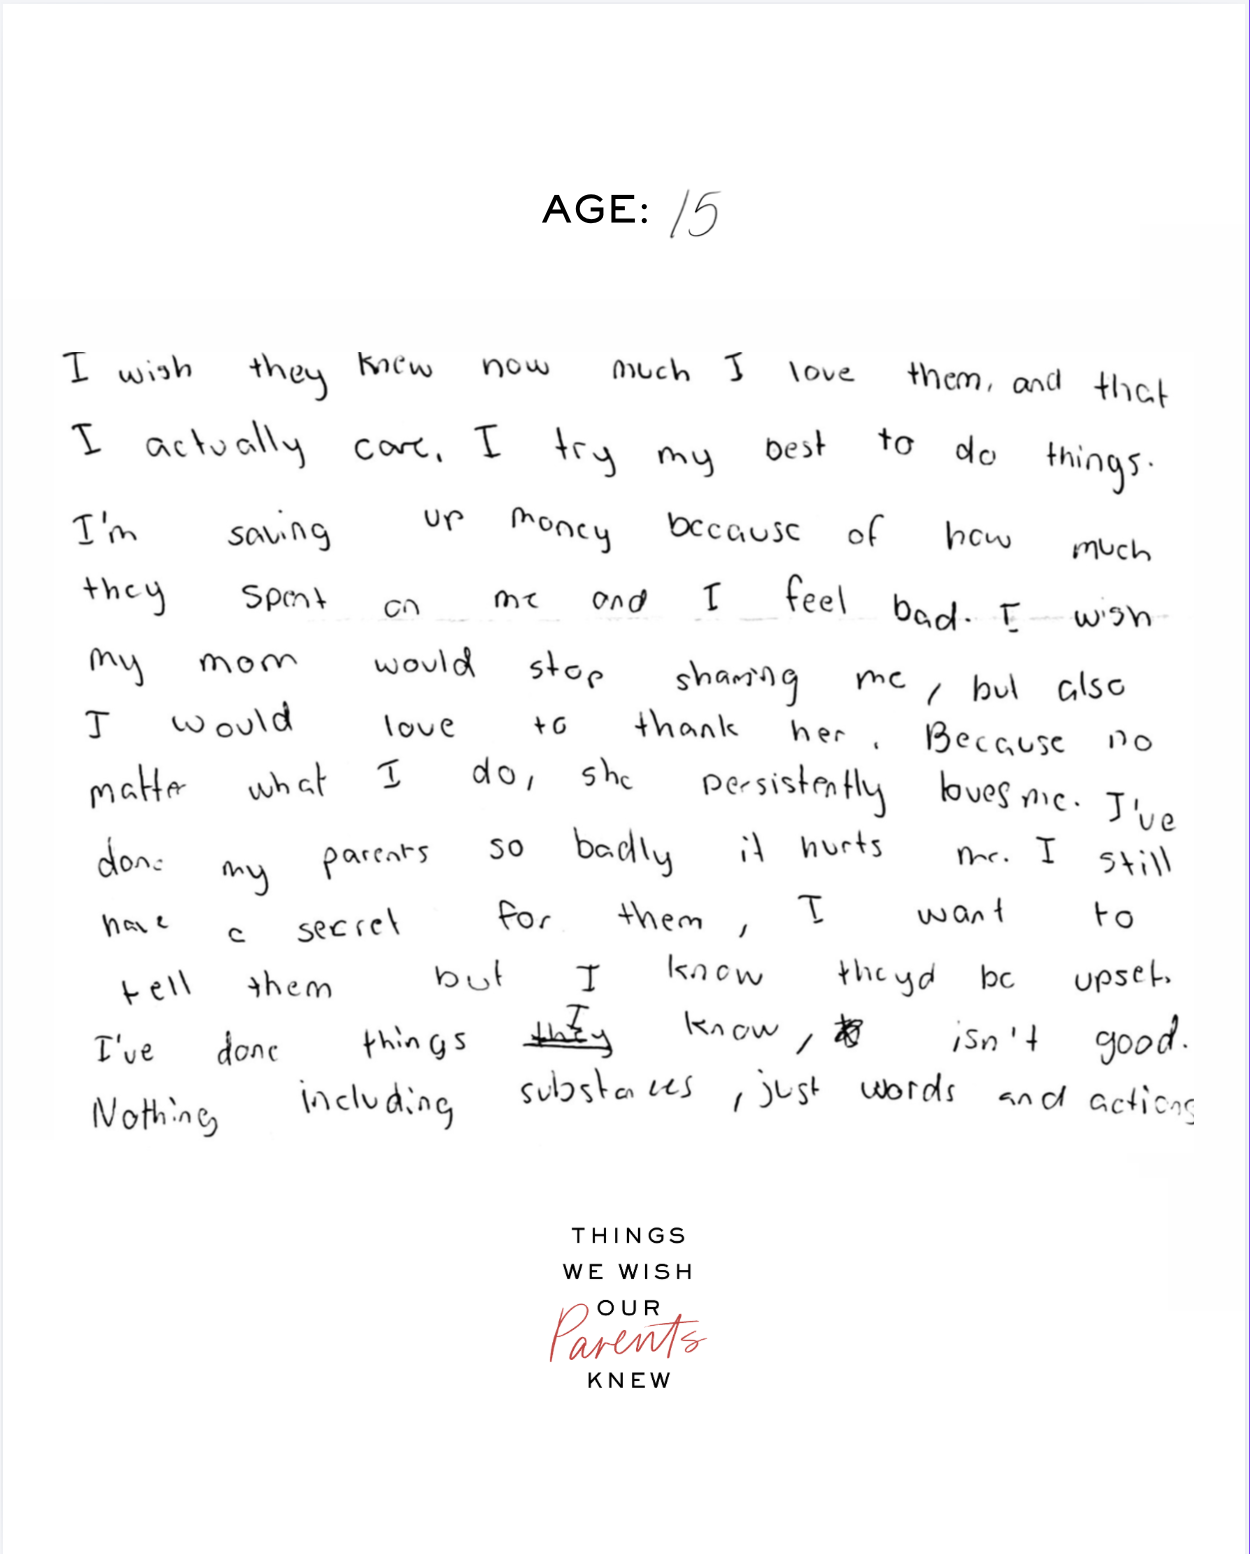 AGE: 15
I wish they knew how much I love them, and that
I actually care. I try my best to do things.
I'm saving up money because of how much
they spent on me and I feel bad. I wish
my mom would stop shaming me, but also
I would love to thank her. Because no
matter what I do, she persistently loves me. I've
done my parents so badly it hurts me. I still
have a secret for them, I want to
tell them but I know theyd be upset.
I've done things they I know, isn't good.
Nothing including substances, just words and actions
THINGS
WE WISH
OUR
Parents
KNEW